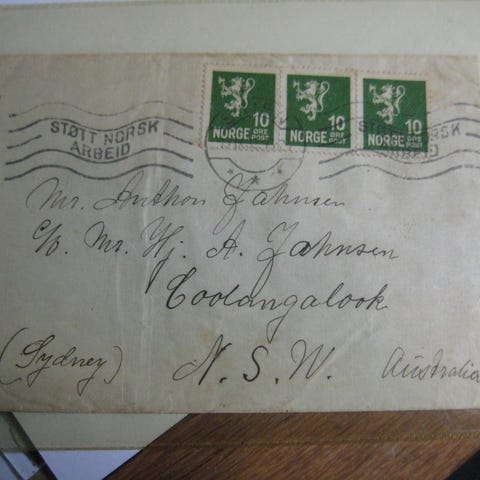 10 10 10
NORGE ØRE POST NORGE ØRE POST NORGE ØRE POST
STØTT NORSK STØTT NORSK
ARBEID ARBEID
Mr. Anthon Jahnsen
c/o. Mr. Hj. A. Jahnsen
Coolangalook
(Sydney) N. S. W. Australia